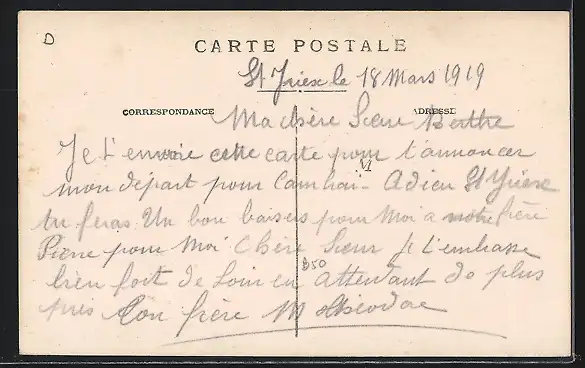 D
CARTE POSTALE
St Yrieix le 18 Mars 1919
CORRESPONDANCE
ADRESSE
Ma chère Sœur Berthe
Je t'envoie cette carte pour t'annoncer
M
mon départ pour Cambrai - Adieu St Yrieix
tu feras Un bon baisers pour Moi a notre frère
Pierre pour Moi Chère Sœur Je t'embrasse
bien fort de Loin en attendant de plus
850
près Ton frère M Théodore